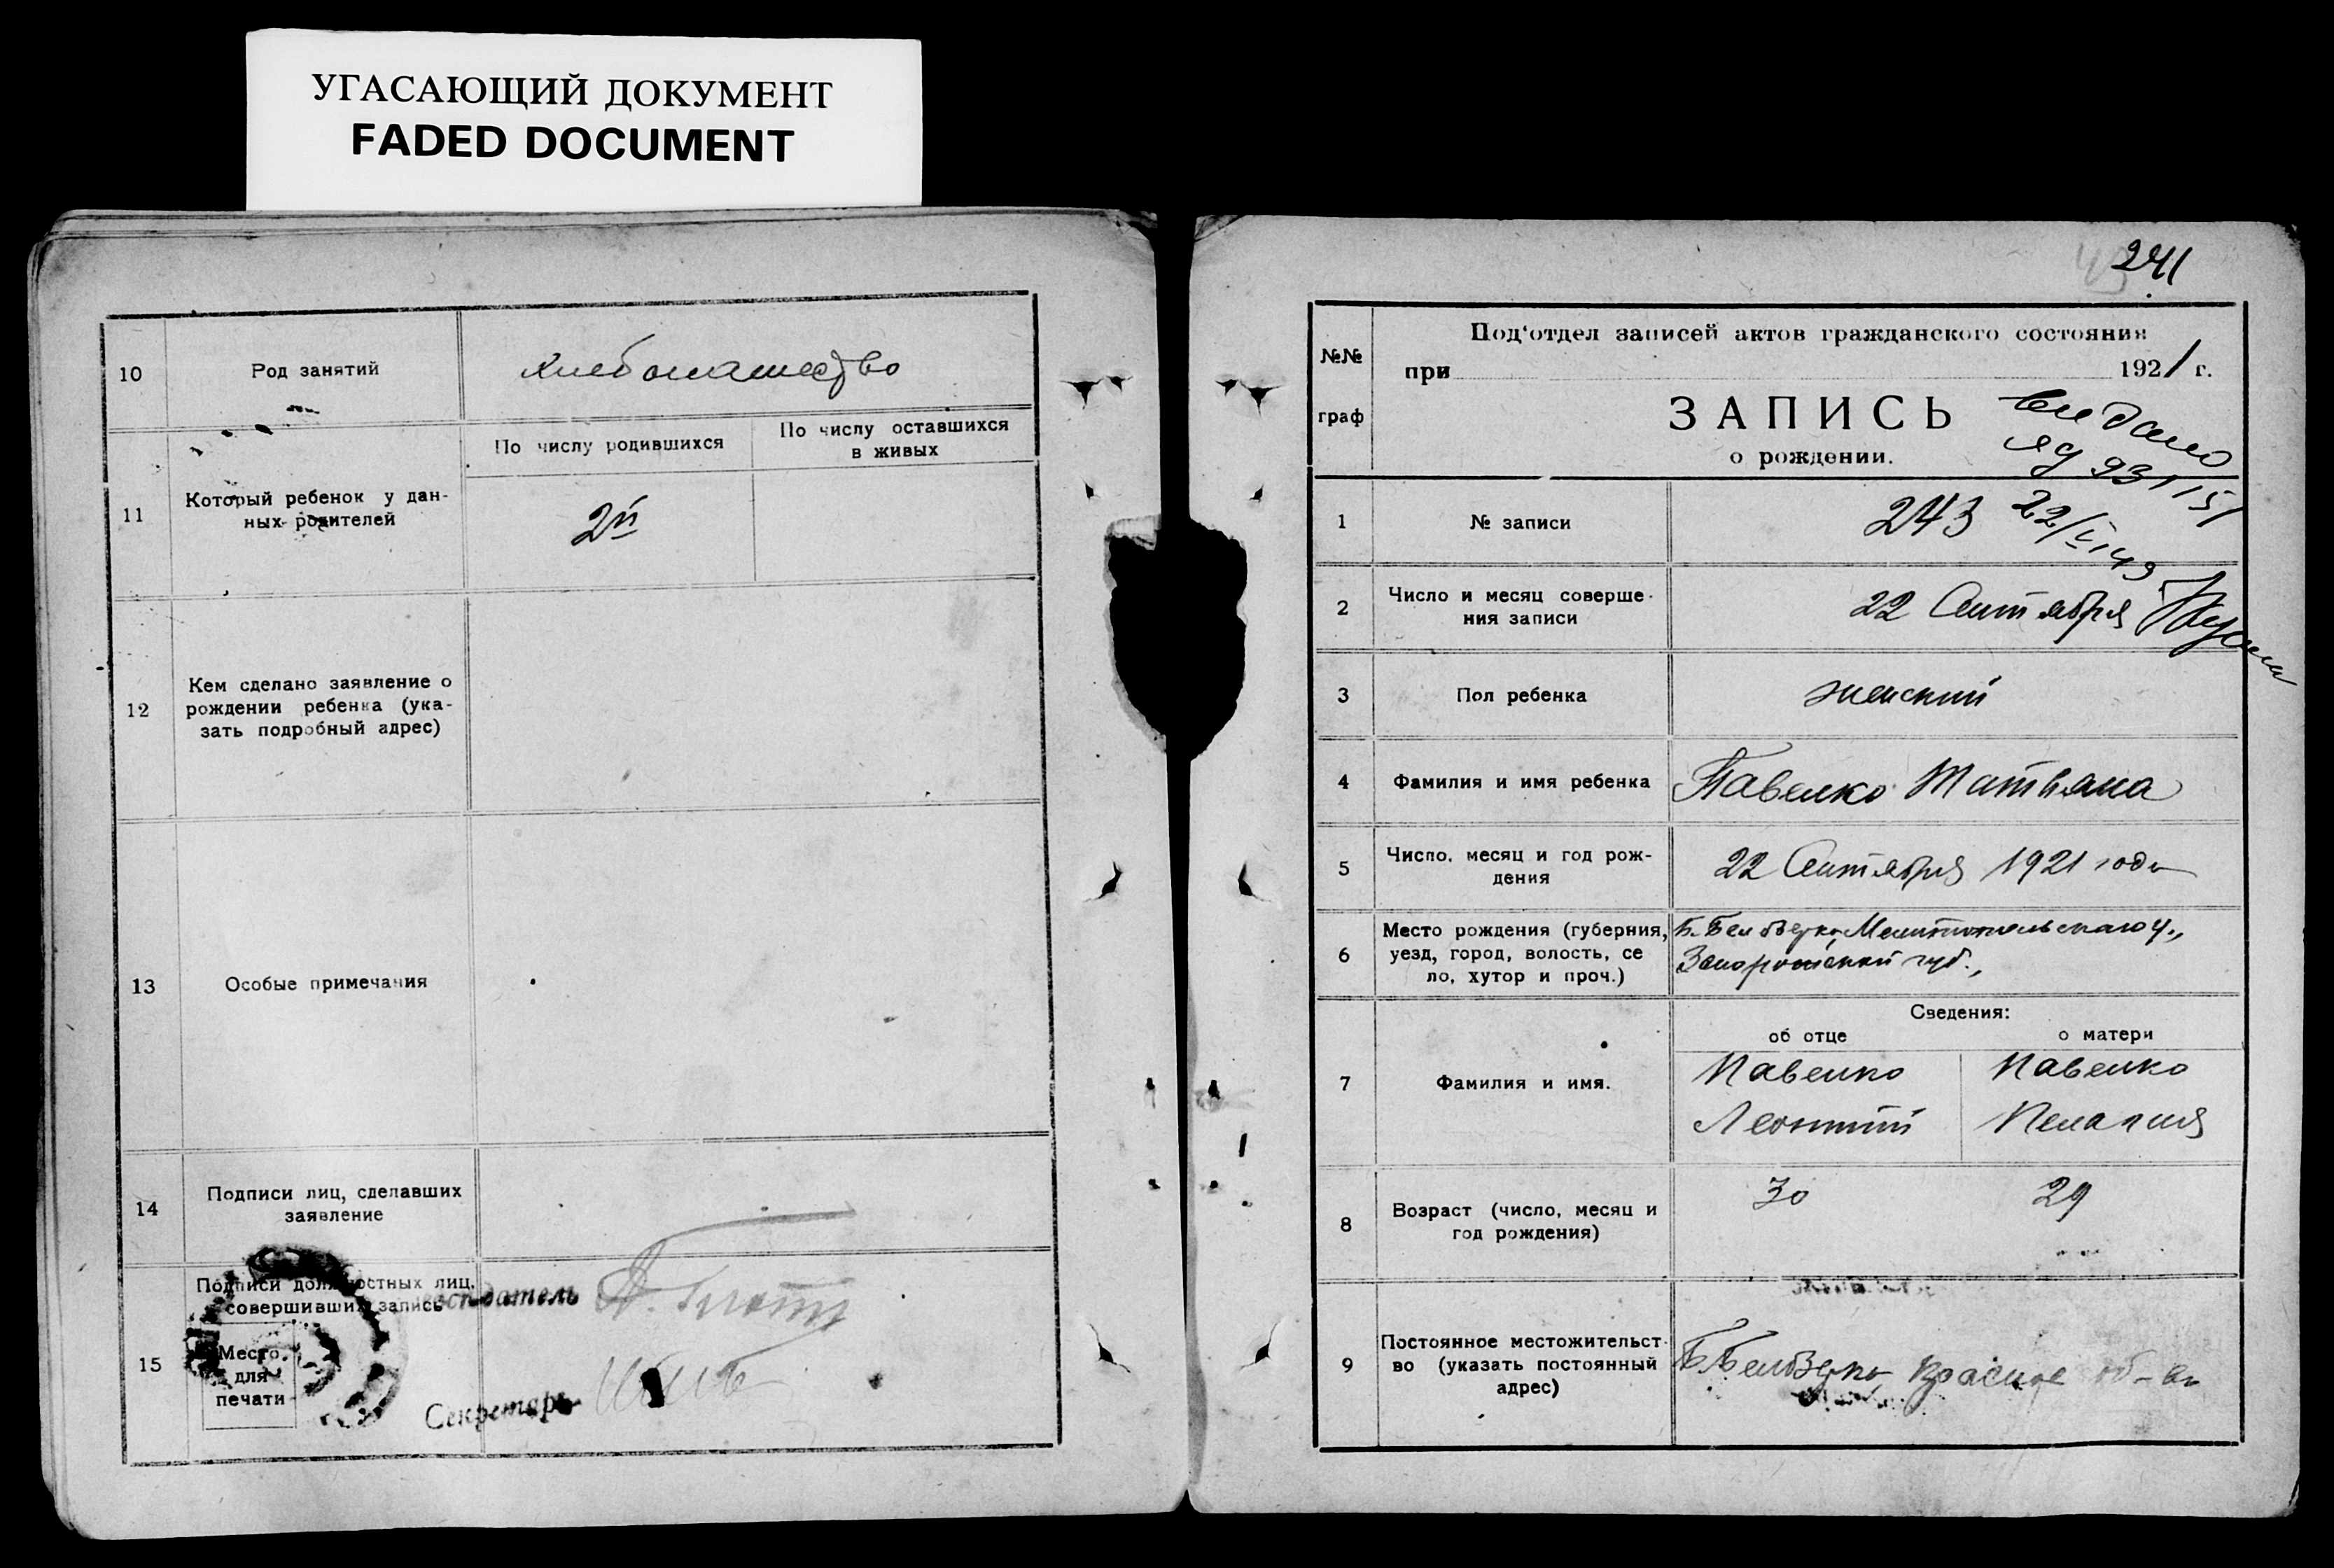 УГАСАЮЩИЙ ДОКУМЕНТ
FADED DOCUMENT
10
Род занятий
хлебопашество
11
Который ребенок у дан-
ных родителей
По числу родившихся
По числу оставшихся
в живых
2й
12
Кем сделано заявление о
рождении ребенка (ука-
зать подробный адрес)
13
Особые примечания
14
Подписи лиц, сделавших
заявление
15
Подписи должностных лиц,
совершивших запись
Место
для
печати
Председатель
Секретарь
241
№№
граф
Под'отдел записей актов гражданского состояния
при 1921 г.
ЗАПИСЬ
о рождении.
выдано
1
№ записи
243
2
Число и месяц соверше-
ния записи
22 Сентября
3
Пол ребенка
женский
4
Фамилия и имя ребенка
Павенко Татьяна
5
Число, месяц и год рож-
дения
22 Сентября 1921 года
6
Место рождения (губерния,
уезд, город, волость, се
ло, хутор и проч.)
Б. Белозерка, Мелитопольскаго у.,
Запорожской губ.,
7
Фамилия и имя.
Сведения:
об отце
о матери
Павенко
Леонтий
Павенко
Пелагия
8
Возраст (число, месяц и
год рождения)
30
29
9
Постоянное местожительст-
во (указать постоянный
адрес)
Б Белозерка Красное об-во